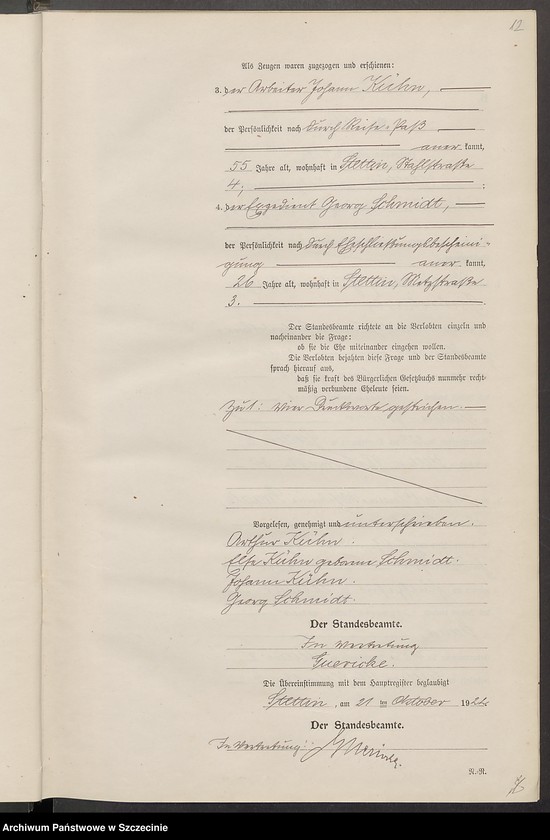 12
Als Zeugen waren zugezogen und erschienen:
3. der Arbeiter Johann Kühn,
der Persönlichkeit nach durch Reise-Paß
aner kannt,
55 Jahre alt, wohnhaft in Stettin, Stahlstraße
4;
4. der Expedient Georg Schmidt,
der Persönlichkeit nach durch Eheschließungsbescheini-
gung aner kannt,
26 Jahre alt, wohnhaft in Stettin, Metzstraße
3.
Der Standesbeamte richtete an die Verlobten einzeln und
nacheinander die Frage:
ob sie die Ehe miteinander eingehen wollen.
Die Verlobten bejahten diese Frage und der Standesbeamte
sprach hierauf aus,
daß sie kraft des Bürgerlichen Gesetzbuchs nunmehr recht-
mäßig verbundene Eheleute seien.
Zu 1: Vier Druckworte gestrichen.
Vorgelesen, genehmigt und unterschrieben.
Arthur Kühn.
Else Kühn geborene Schmidt.
Johann Kühn.
Georg Schmidt.
Der Standesbeamte.
In Vertretung
Guericke.
Die Übereinstimmung mit dem Hauptregister beglaubigt
Stettin, am 21 ten Oktober 1922
Der Standesbeamte.
In Vertretung:
R.-R.
Archiwum Państwowe w Szczecinie